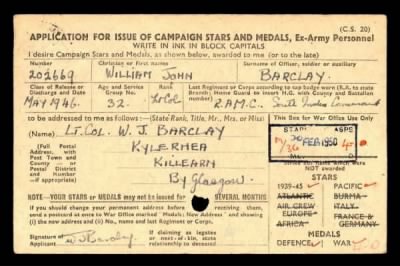 (C.S. 20)
APPLICATION FOR ISSUE OF CAMPAIGN STARS AND MEDALS, Ex-Army Personnel
WRITE IN INK IN BLOCK CAPITALS
I desire Campaign Stars and Medals, as shown below, awarded to me (or to the late)
Number Christian or first names Surname of Officer, soldier or auxiliary
202669 WILLIAM JOHN BARCLAY
Class of Release or Discharge and Date Age and Service Group No. Rank Last Regiment or Corps according to cap badge worn
MAY 1946. 32. Lt Col R.A.M.C. South India Command
to be addressed to me as follows: (State Rank, Title, Mr., Mrs. or Miss) This Box for War Office Use Only
(Name) LT. COL. W. J. BARCLAY
(Full Postal Address, with Post Town and County or Postal District and Number if appropriate)
KYLERHEA
KILLEARN
By Glasgow.
FEB 1950
NOT awarded
STARS
1939-45 PACIFIC
ATLANTIC BURMA
AIR CREW ITALY
EUROPE FRANCE & GERMANY
AFRICA
MEDALS
DEFENCE WAR
- YOUR STARS or MEDALS may not be issued for SEVERAL MONTHS
If you should change your permanent address before receiving them, you must send a postcard at once to War Office marked 'Medals: New Address' and showing (i) the new address (ii) No., name and last Regiment or Corps.
(Signature) W J Barclay
If claiming as legatee or next-of-kin, state relationship to deceased